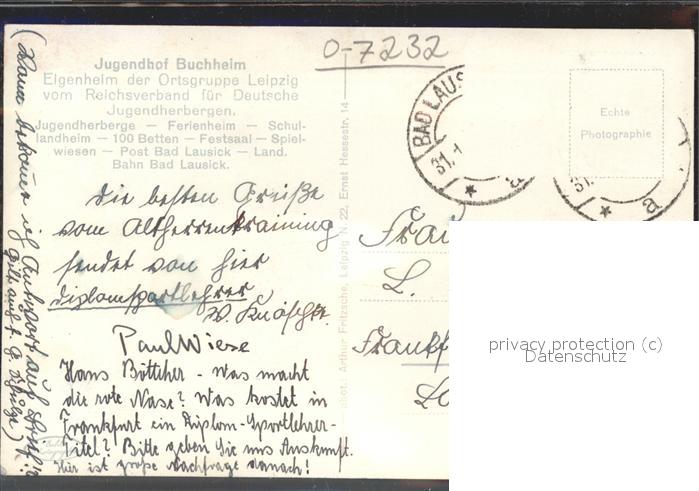 O-7232
Jugendhof Buchheim
Eigenheim der Ortsgruppe Leipzig
vom Reichsverband für Deutsche
Jugendherbergen.
Jugendherberge — Ferienheim — Schul-
landheim — 100 Betten — Festsaal — Spiel-
wiesen — Post Bad Lausick — Land.
Bahn Bad Lausick.
BAD LAUS
31.
a
Echte
Photographie
31.
a
Die besten Grüße
vom Altherrentraining
sendet von hier
Diplomsportlehrer
W.
Paul Wiese
Hans Böttcher - Was macht
die rote Nase? Was kostet in
Frankfurt ein Diplom-Sportlehrer-
Titel? Bitte geben Sie uns Auskunft.
Hier ist große Nachfrage danach!
(Wann bekomme ich Antwort auf
Arthur Fritzsche, Leipzig N. 22, Ernst Hessestr. 14
Frau
L.
Frankf
privacy protection (c)
Datenschutz